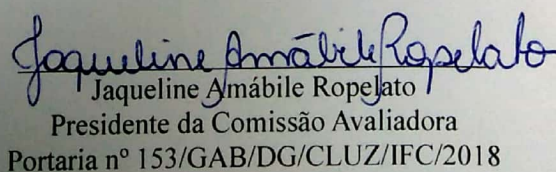 Jaqueline Amábile Ropelato
Jaqueline Amábile Ropelato
Presidente da Comissão Avaliadora
Portaria nº 153/GAB/DG/CLUZ/IFC/2018